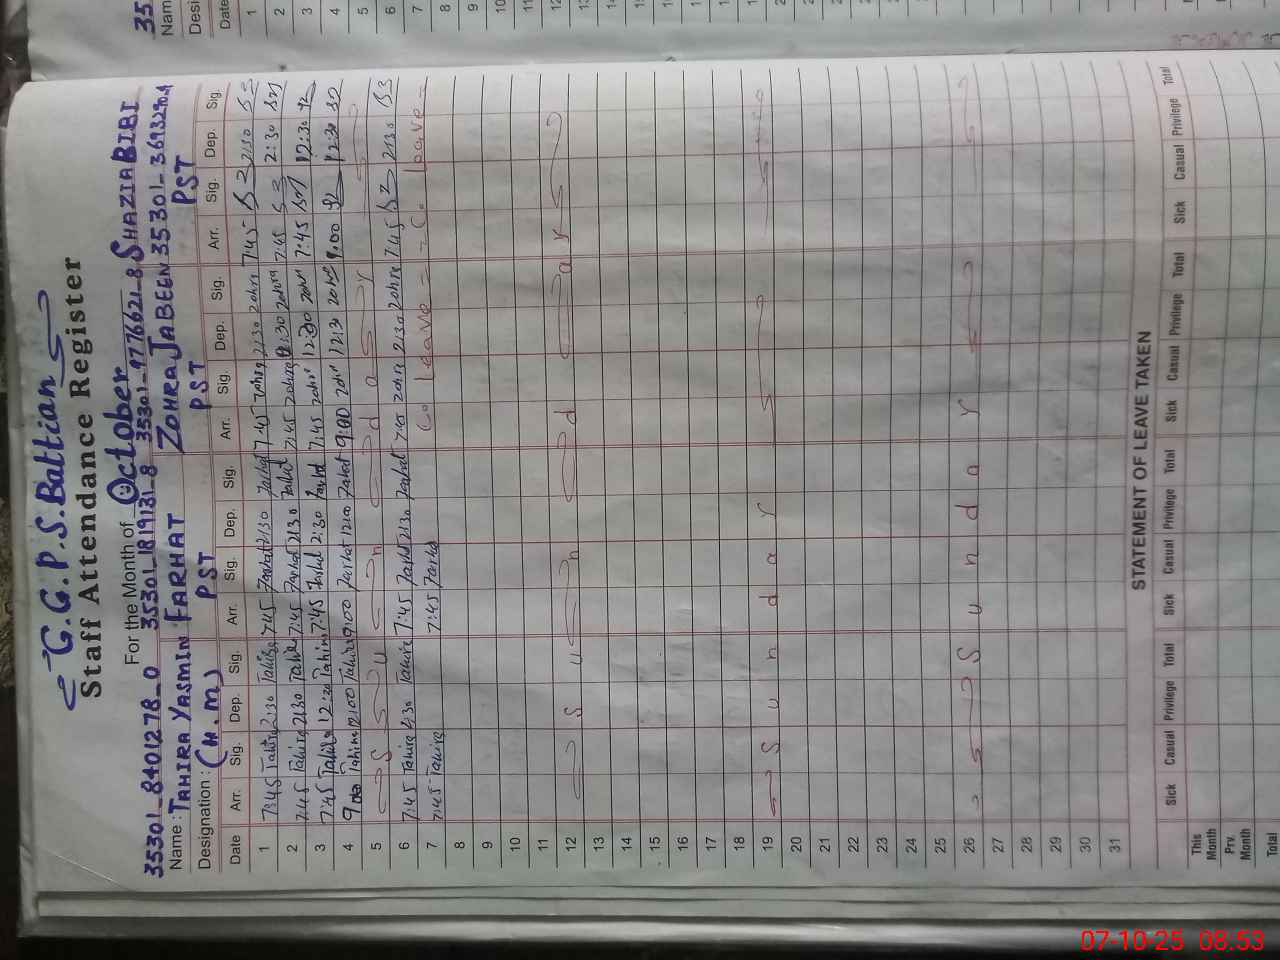 G. G. P. S. Battian
Staff Attendance Register
For the Month of October
35301_8401278_0 35301_1819131_8 35301_9776621_8 35301_3693290_4
Name : TAHIRA YASMIN FARHAT ZOHRA JABEEN SHAZIA BIBI
Designation : (H.M) PST PST PST
Date Arr. Sig. Dep. Sig. Arr. Sig. Dep. Sig. Arr. Sig. Dep. Sig. Arr. Sig. Dep. Sig.
1 7:45 Tahira 2:30 Tahira 7:45 Farhat 2:30 Farhat 7:45 Zohra 2:30 Zohra 7:45 2:30
2 7:45 Tahira 2:30 Tahira 7:45 Farhat 2:30 Farhat 7:45 Zohra 2:30 Zohra 7:45 2:30
3 7:45 Tahira 12:30 Tahira 7:45 Farhat 2:30 Farhat 7:45 Zohra 12:30 Zohra 7:45 12:30
4 9:00 Tahira 12:00 Tahira 9:00 Farhat 12:00 Farhat 9:00 Zohra 12:30 Zohra 9:00 12:30
5 S u n d a y
6 7:45 Tahira 2:30 Tahira 7:45 Farhat 2:30 Farhat 7:45 Zohra 2:30 Zohra 7:45 2:30
7 7:45 Tahira 7:45 Farhat C. leave = = C. leave =
8
9
10
11
12 S u n d a y
13
14
15
16
17
18
19 S u n d a y
20
21
22
23
24
25
26 S u n d a y
27
28
29
30
31
STATEMENT OF LEAVE TAKEN
Sick Casual Privilege Total Sick Casual Privilege Total Sick Casual Privilege Total Sick Casual Privilege Total
This Month
Prv. Month
Total
35
Nam
Desi
Date
1
2
3
4
5
6
7
8
9
10
11
12
13
14
15
16
17
18
19
20
21
22
23
24
25
26
27
28
29
30
31
07-10-25 08:53